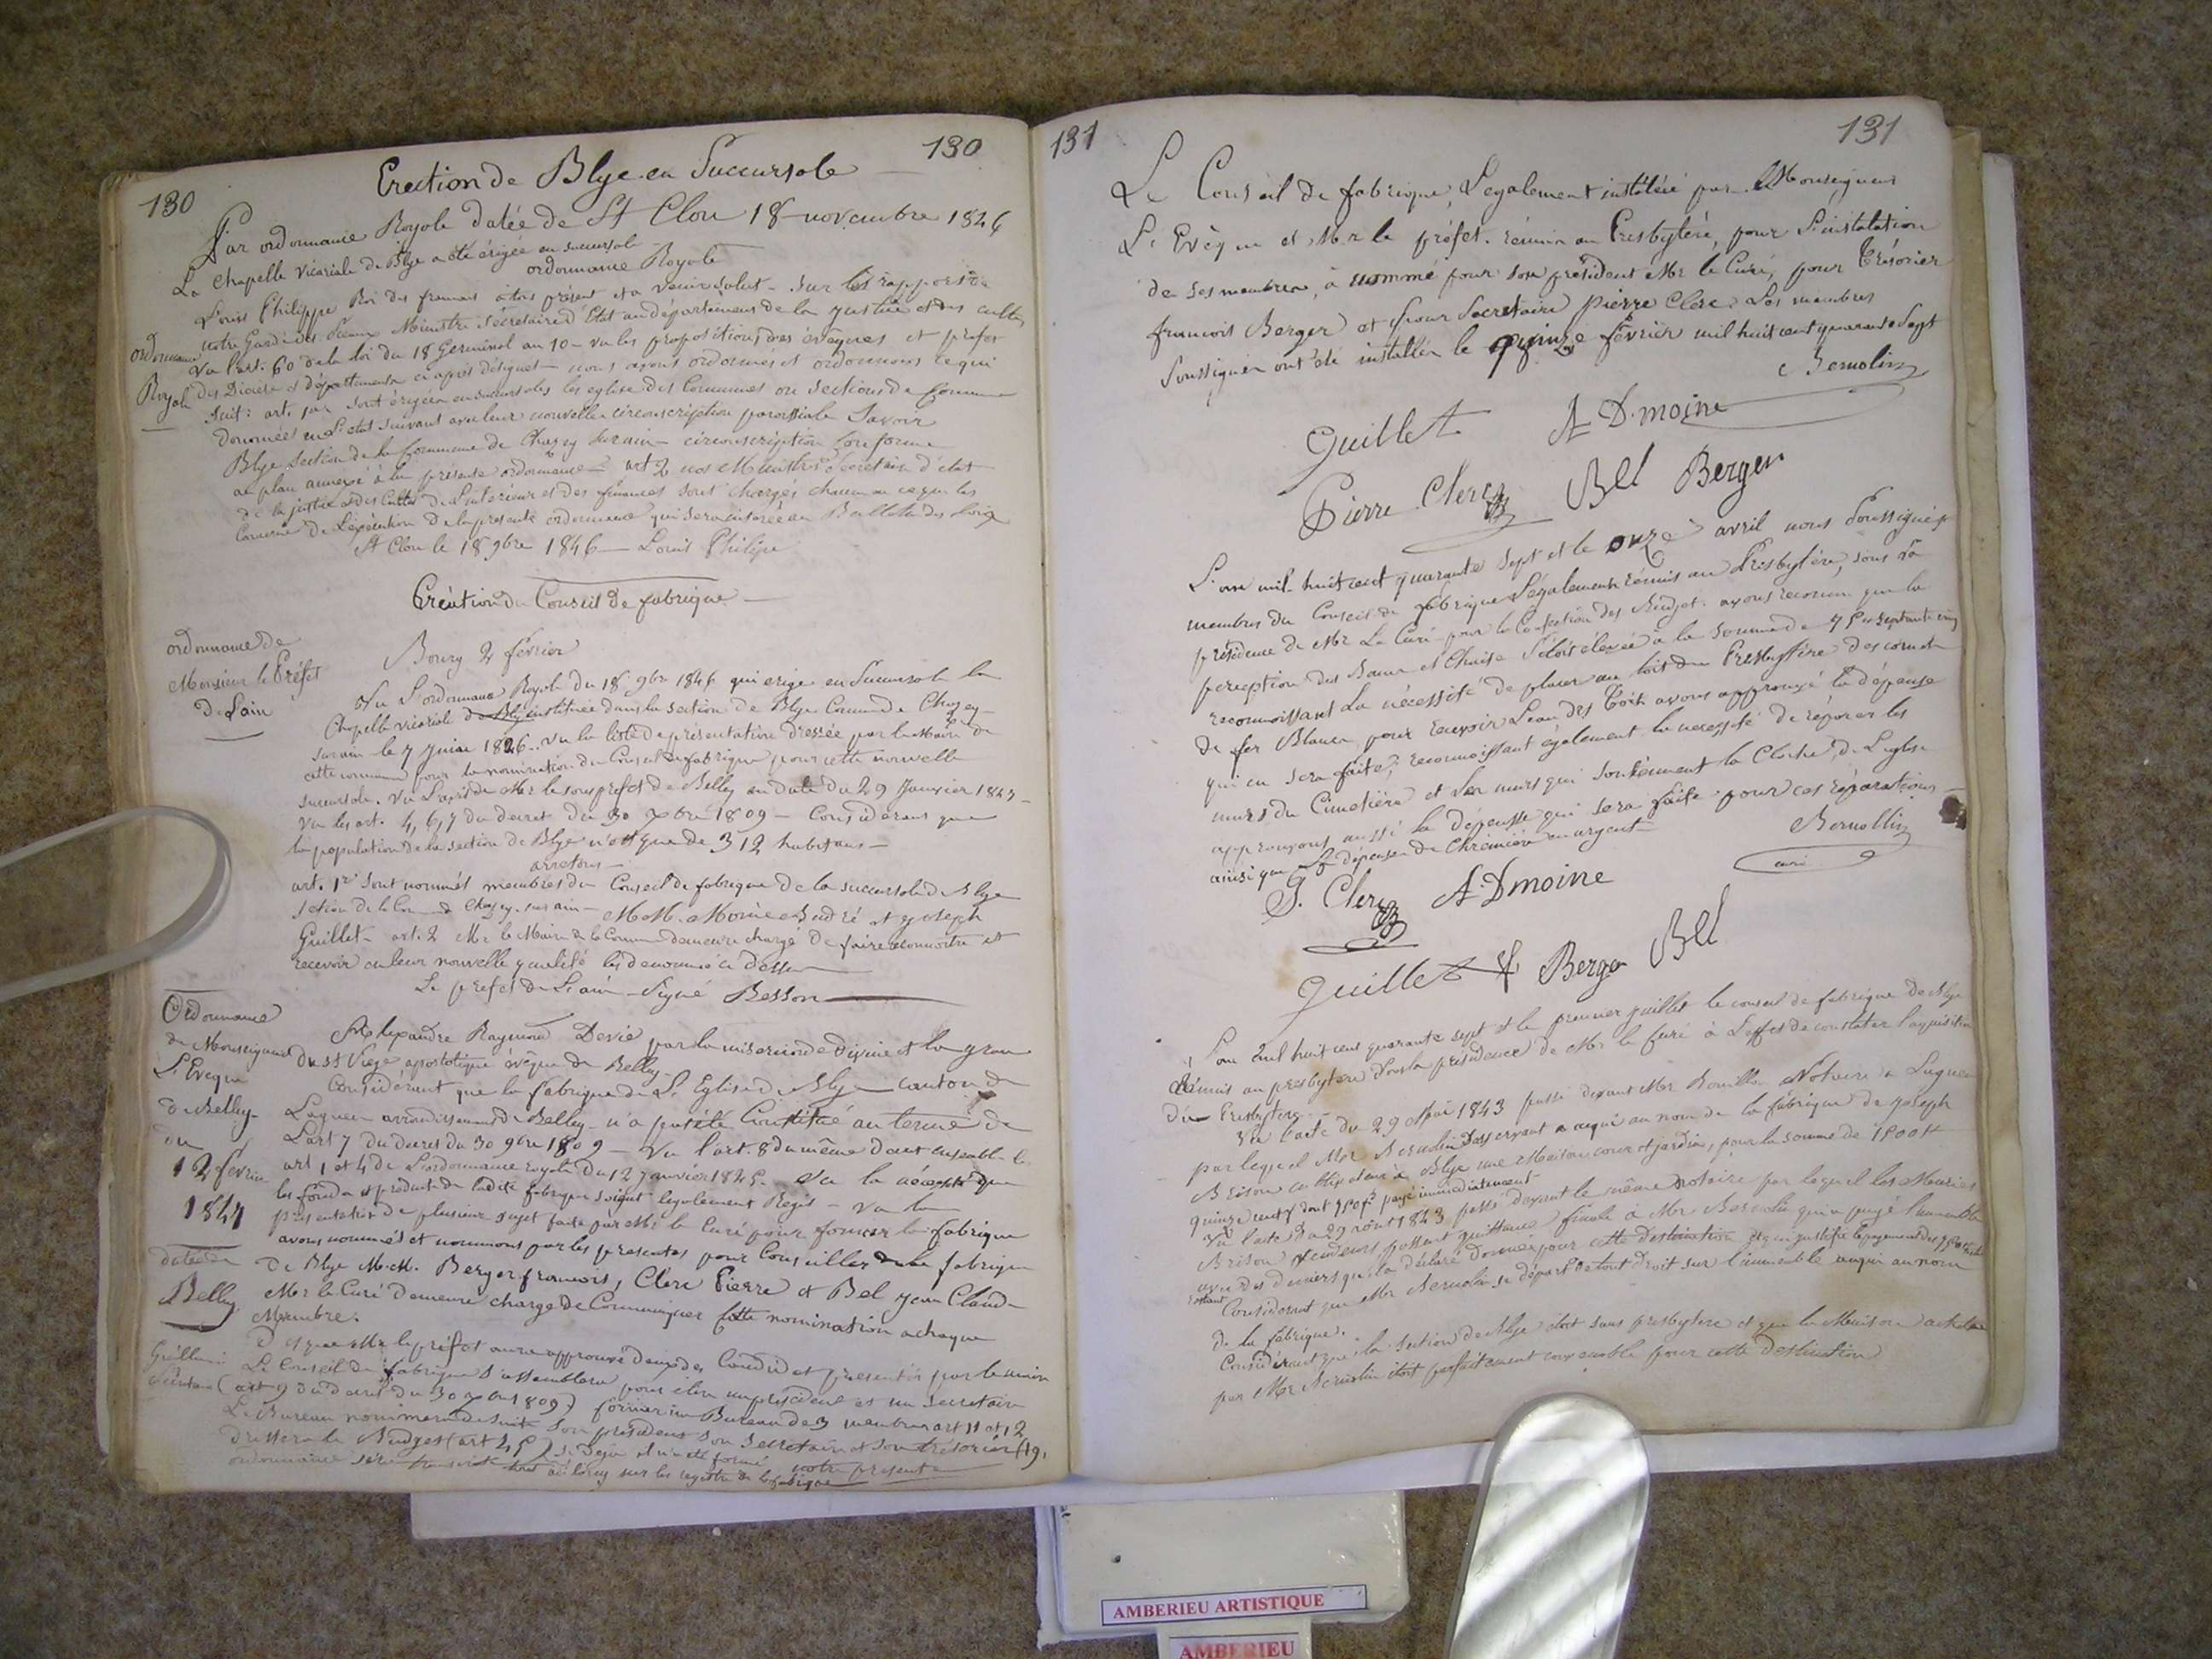 130
130
Erection de Blye en Succursale
Par ordonnance Royale datée de St Clou 18 novembre 1846
La chapelle vicariale de Blye a été érigée en succursale
ordonnance Royale
Louis Philippe Roi des francais à tous présent et a venir salut - sur les rapports de
notre Garde des Sceaux Ministre Secretaire d'Etat au département de la justice et des cultes
ordonnance
Royale
vu l'art. 60 de la loi du 18 Germinal an 10 - vu les propositions des évêques et prefet
des Diocèse et départements ci après désignés - nous avons ordonnés et ordonnons ce qui
suit: art. 1er sont érigées en succursales les eglise des Communes ou sections de Commune
dénomées en l'état suivant avec leur nouvelle circonscription paroissiale Savoir
Blye section de la Commune de Chazey sur ain - circonscription conforme
au plan annexé à la présente ordonnance - art 2 nos Ministres Secretaire d'état
de la justice et des Cultes de l'interieur et des finances sont chargés chacun en ce qui les
Concerne de L'exécution de la presente ordonnance qui sera insérée au Bulletin des Lois
St Clou le 18 9bre 1846 - Louis Philippe
Création du Conseil de fabrique
ordonnance de
Monsieur le Préfet
de Lain
Bourg 2 février
Vu L'ordonnance Royale du 18 9bre 1846 qui erige en Succursale la
Chapelle vicariale de Blye instituée dans la section de Blye Commune de Chazey
sur ain le 7 juin 1826 - vu la liste de présentation dressée par le Maire de
cette commune pour la nomination du Conseil de fabrique pour cette nouvelle
succursale. Vu L'avis de Mr le sous prefet de Belley en date du 29 Janvier 1847 -
Vu les art. 4, 6, 7 du decret du 30 Xbre 1809 - Considérant que
la population de la section de Blye n'est que de 312 habitans -
arretons -
art. 1er Sont nommés membres du Conseil de fabrique de la succursale de Blye
section de la Com. de Chazey sur ain - M.M. Moine André et Joseph
Guillet - art. 2 Mr le Maire de la Commune demeure chargé de faire reconnoitre et
recevoir en leur nouvelle qualité les denommés ci dessus
Le prefet de L'ain - Signé Besson
Ordonnance
de Monseigneur
L'Eveque
de Belley
du
12 février
1847
datée de
Belley
Alexandre Raymond Devie par la misericorde divine et la grace
du St Siege apostolique évêque de Belley
Considérant que la fabrique de L'Eglise de Blye canton de
Lagneu arrondissement de Belley n'a pas été Constitué au terme de
L'art 7 du decret du 30 9bre 1809 - Vu l'art. 8 du même decret ensemble les
art 1 et 4 de L'ordonnance royale du 12 janvier 1825 - Vu la nécessité que
les fonds et produits de ladite fabrique soient legalement Regis - Vu la
présentation de plusieurs sujet faite par Mr le Curé pour former la fabrique
avons nommés et nommons par les presentes pour Conseiller de la fabrique
de Blye M.M. Berger francois, Clerc Pierre et Bel Jean Claude
Mr le Curé demeure chargé de Communiquer cette nomination a chaque
Membre.
D et que Mr le préfet aura approuvé deux des Candidat présentés par le maire
Le Conseil de fabrique s'assemblera pour elire un président et un secretaire
(art 9 du decret du 30 Xbre 1809) former un Bureau de 3 membres art 11 et 12
Le Bureau nommera de suite son président son secretaire et son trésorier (19.
dressera le Budget (art 45) si deja il n'a été formé notre presente
ordonnance sera transcrite sur les registre de la fabrique
131
131
Le Conseil de fabrique, Légalement institué par Monseigneur
L'Evèque et Mr le préfet. réunis au Presbytère, pour L'instalation
de ses membres, à nommé pour son président Mr le Curé, pour Trésorier
francois Berger et pour Secretaire Pierre Clerc. Les membres
Soussignés ont été installés le quinze février mil huit cent quarante sept
Bernolin
Guillet A Dmoine
Pierre Clerc Bel Berger
L'an mil huit cent quarante sept et le onze avril nous Soussignés
membres du Conseil de fabrique Légalement réunis au Presbytère, sous la
présidence de Mr Le Curé pour la Confection des Budget. avons reconnu que la
perception des Bancs et Chaise s'étoit élevée à la somme de 75 f septante cinq
reconnoissant La nécessité de placer au toit du Presbytère des cornets
de fer Blanc pour recevoir L'eau des toits avons approuvé la dépense
qui en sera faite; reconnoissant également la necessité de réparer les
murs du Cimetière et Les murs qui soutiennent la Cloche de L'eglise
approuvons aussi la dépense qui sera faite pour ces réparations
ainsi que La dépense de en argent
Bernollin
curé
P. Clerc A. Dmoine
Guillet Berger Bel
L'an mil huit cent quarante sept et le premier juillet le conseil de fabrique de Blye
Réunis au presbytere sous la présidence de Mr le Curé à L'effet de constater l'aquisition
du Presbytere
Vu l'acte du 29 Mai 1843 passé devant Mr Notaire a Lagneu
par lequel Mr Bernolin Desservant a aqui au nom de la fabrique de Joseph
Brison cultivateur à Blye une Maison cour et jardin, pour la somme de 1500 f
quinze cent f dont 750 f payé immédiatement
Vu l'acte du 29 aout 1843 passé devant le même Notaire par lequel les Mariés
Brison vendeurs, passent quittance finale à Mr Bernolin qui a payé l'immeuble
avec des deniers qu'il a déclaré donnés pour cette destination
Considérant que Mr Bernolin se départ de tout droit sur l'immeuble aquis au nom
de la fabrique.
Considérant que la Section de Blye étoit sans presbytere et que la Maison achetée
par Mr Bernolin étoit parfaitement convenable pour cette destination
AMBERIEU ARTISTIQUE
AMBERIEU